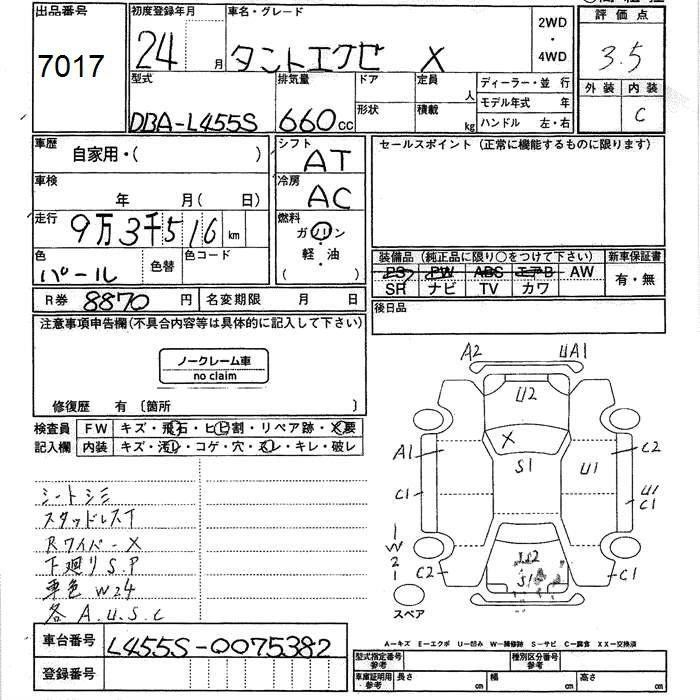 出品番号
7017
初度登録年月
24 月
車名・グレード
タントエクゼ X
2WD
・
4WD
評価点
3.5
外装 内装
C
型式
DBA-L455S
排気量
660 cc
ドア
形状
定員 人
積載 kg
ディーラー・並行
モデル年式 年
ハンドル 左・右
車歴
自家用・( )
シフト
AT
セールスポイント (正常に機能するものに限ります)
車検
年 月( 日)
冷房
AC
走行
9万3千516 km
燃料
ガソリン
・
軽・油
色
パール
色替
色コード
装備品 (純正品に限り○をつけて下さい)
新車保証書
PS PW ABS エアB AW
有・無
SR ナビ TV カワ
R券 8870 円
名変期限 月 日
後日品
注意事項申告欄(不具合内容等は具体的に記入して下さい)
ノークレーム車
no claim
修復歴 有〔箇所 〕
検査員 FW キズ・飛石・ヒビ割・リペア跡・X要
記入欄 内装 キズ・汚れ・コゲ・穴・スレ・キレ・破レ
シートシミ
スタッドレスT
Rワイパー X
下廻り S.P
車色 W24
各 A.U.S.C
A2
UA1
U2
X
S1
A1
C2
U1
C1
U1
C1
W
2
1
C2
S2
S1
C1
スペア
車台番号
L455S-0075382
登録番号
A-キズ E-エクボ U-凹み W-補修跡 S-サビ C-腐食 XX-交換済
型式指定番号
参考
種別区分番号
参考
車庫証明用
参考
長さ cm
幅 cm
高さ cm